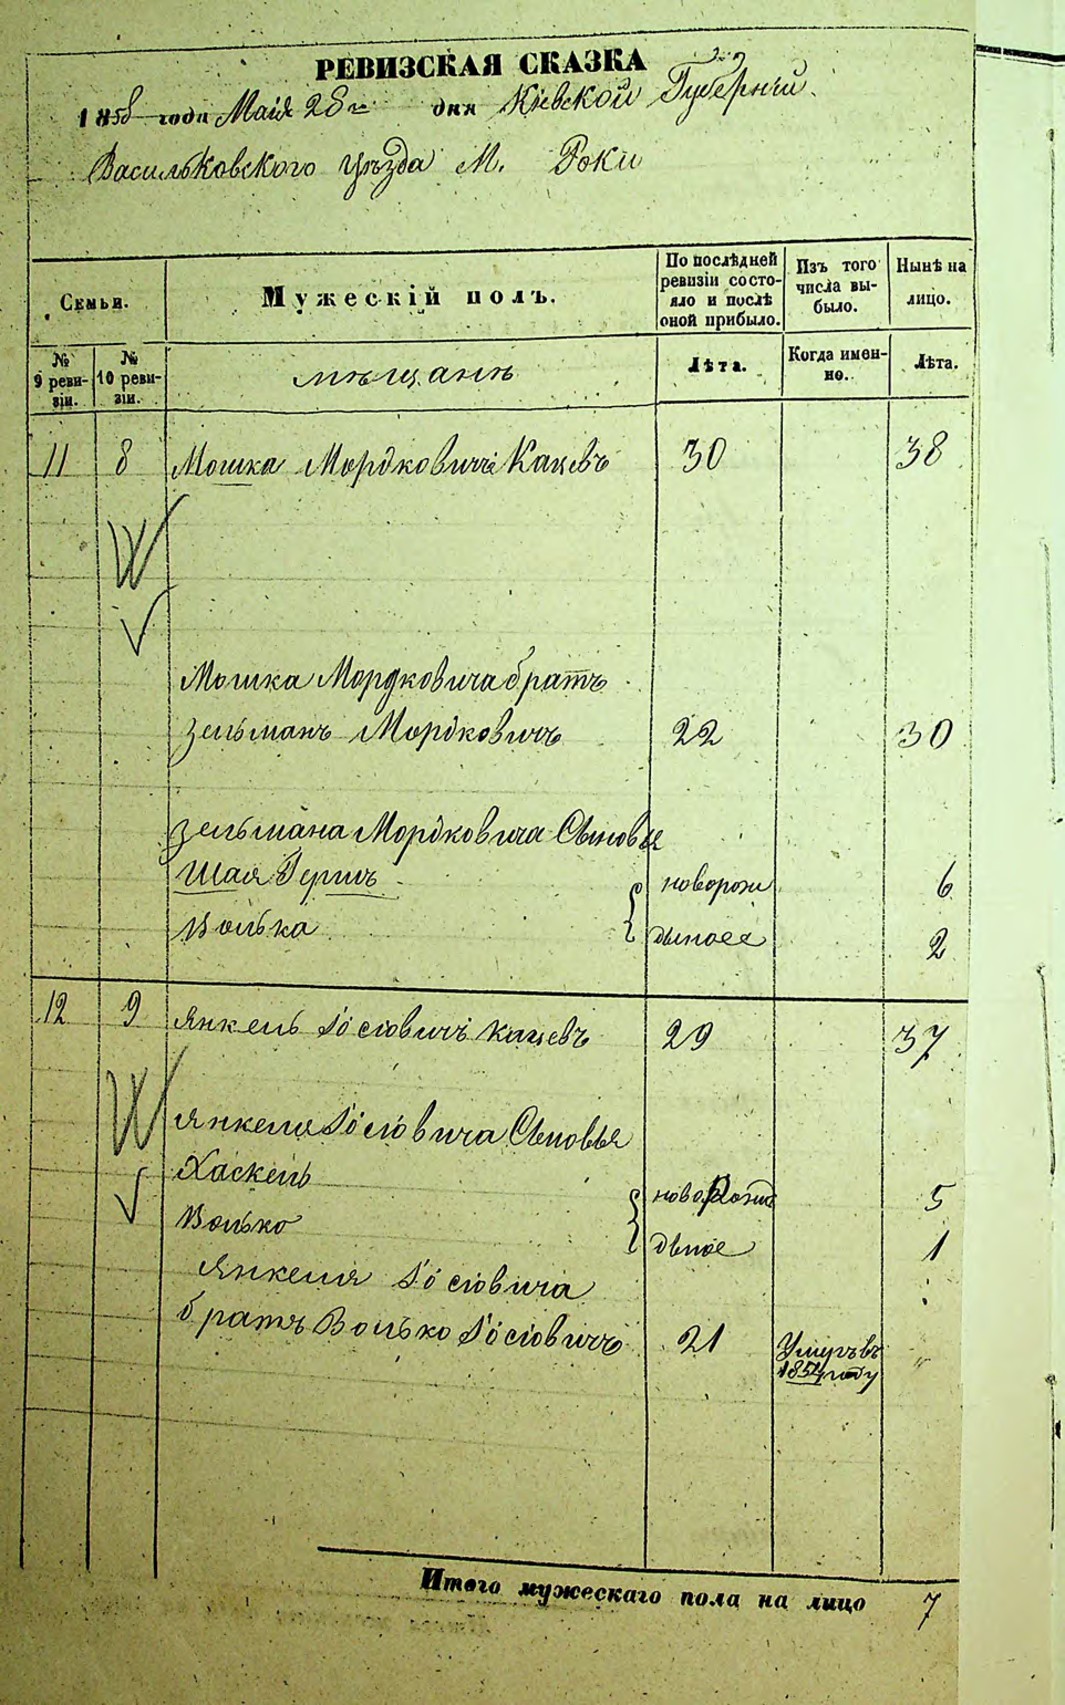 РЕВИЗСКАЯ СКАЗКА
1858 года Маія 28го дня Кіевской Губерніи
Васильковского Уѣзда М. Роки
Семьи.
Мужескій полъ.
По послѣдней ревизіи состояло и послѣ оной прибыло.
Изъ того числа выбыло.
Нынѣ на лицо.
№ 9 ревизіи.
№ 10 ревизіи.
мѣщанѣ
Лѣта.
Когда именно.
Лѣта.
11 8 Мошка Мордковичъ Кацевъ 30 38
Мошка Мордковича братъ
Зельманъ Мордковичъ 22 30
Зельмана Мордковича Сыновья
Шая Гершъ новорож 6
Волька 2
12 9 Янкель Іосіовичъ Кацевъ 29 37
Янкеля Іосіовича Сыновья
Хаскель новорож 5
Волько дьное 1
Янкеля Іосіовича
братъ Волько Іосіовичъ 21 Умеръ въ 1854 году "
Итого мужескаго пола на лицо 7